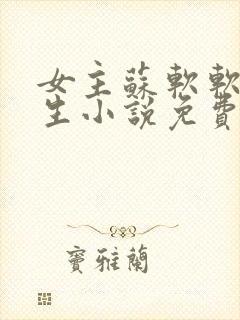 女主蘇軟軟
生小說免費
竇雅蘭